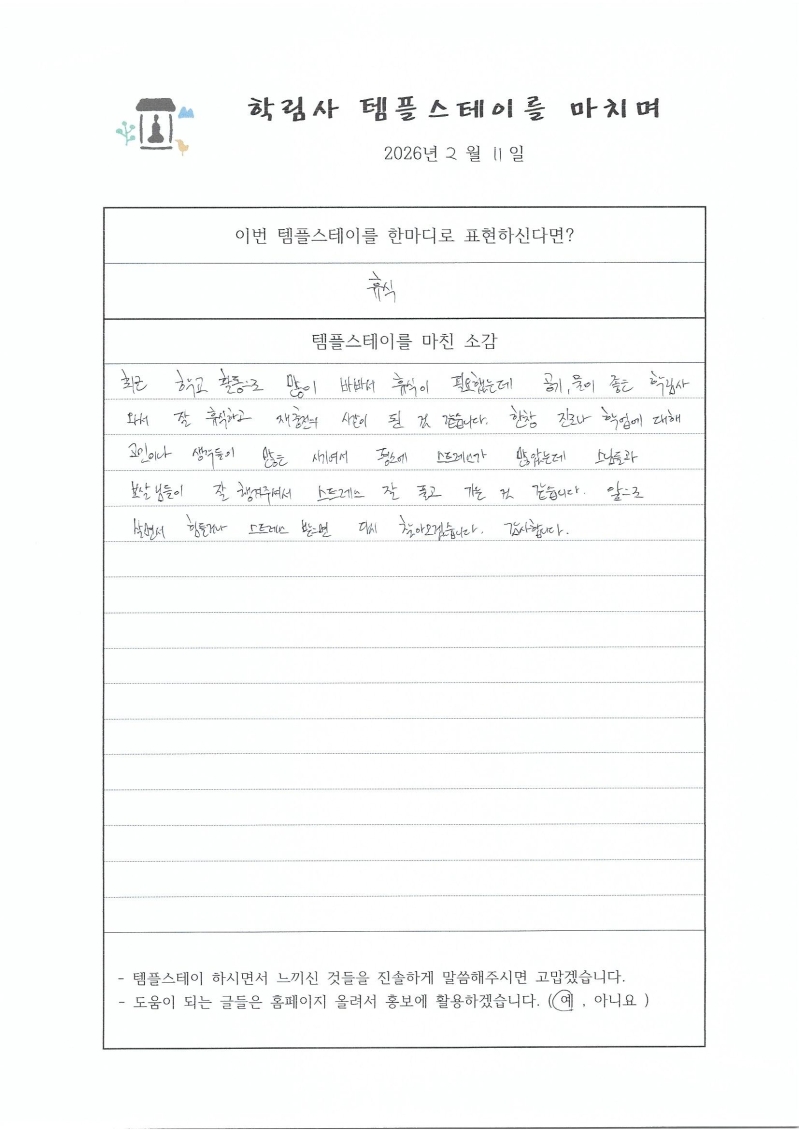 학림사 템플스테이를 마치며
2026년 2 월 11 일
이번 템플스테이를 한마디로 표현하신다면?
휴식
템플스테이를 마친 소감
최근 학교 활동으로 많이 바빠서 휴식이 필요했는데 공기, 물이 좋은 학림사
와서 잘 휴식하고 재충전의 시간이 된 것 같습니다. 한창 진로나 학업에 대해
고민이나 생각들이 많은 시기여서 평소에 스트레스가 많았는데 스님들과
보살님들이 잘 챙겨주셔서 스트레스 잘 풀고 가는 것 같습니다. 앞으로
살면서 힘들거나 스트레스 받으면 다시 찾아오겠습니다. 감사합니다.
- 템플스테이 하시면서 느끼신 것들을 진솔하게 말씀해주시면 고맙겠습니다.
- 도움이 되는 글들은 홈페이지 올려서 홍보에 활용하겠습니다. (예 , 아니요 )